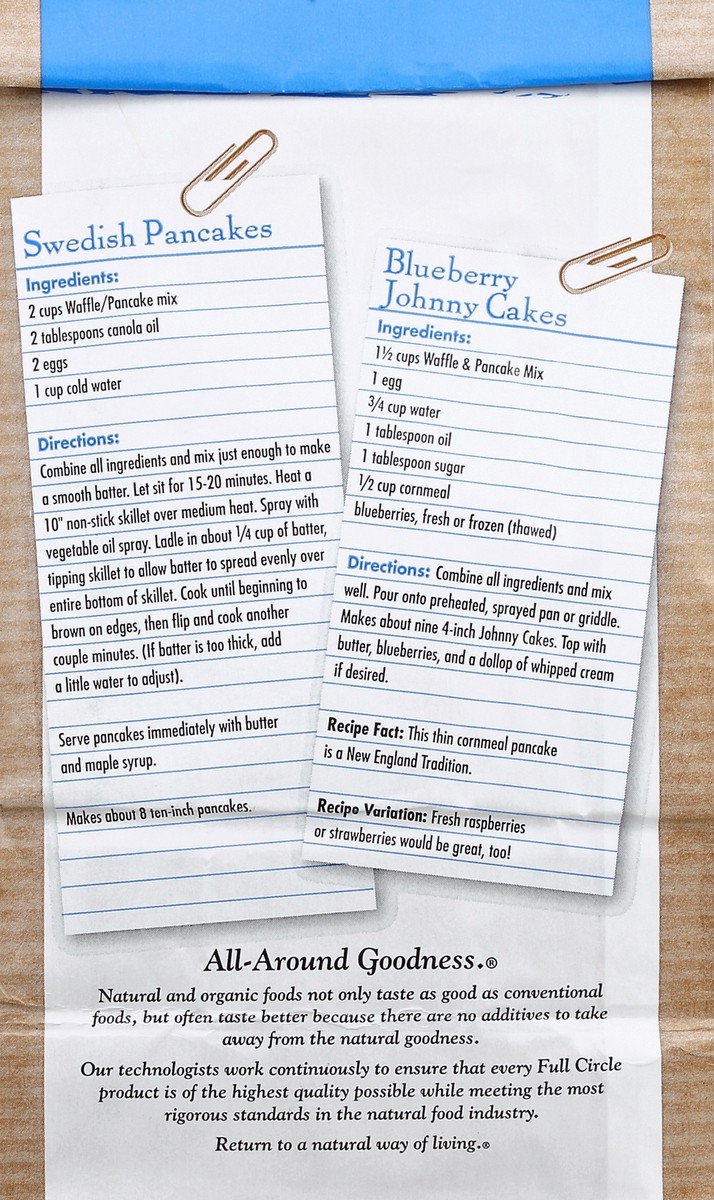 Swedish Pancakes
Ingredients:
2 cups Waffle/Pancake mix
2 tablespoons canola oil
2 eggs
1 cup cold water
Directions:
Combine all ingredients and mix just enough to make
a smooth batter. Let sit for 15-20 minutes. Heat a
10" non-stick skillet over medium heat. Spray with
vegetable oil spray. Ladle in about 1/4 cup of batter,
tipping skillet to allow batter to spread evenly over
entire bottom of skillet. Cook until beginning to
brown on edges, then flip and cook another
couple minutes. (If batter is too thick, add
a little water to adjust).
Serve pancakes immediately with butter
and maple syrup.
Makes about 8 ten-inch pancakes.
Blueberry
Johnny Cakes
Ingredients:
1½ cups Waffle & Pancake Mix
1 egg
3/4 cup water
1 tablespoon oil
1 tablespoon sugar
½ cup cornmeal
blueberries, fresh or frozen (thawed)
Directions: Combine all ingredients and mix
well. Pour onto preheated, sprayed pan or griddle.
Makes about nine 4-inch Johnny Cakes. Top with
butter, blueberries, and a dollop of whipped cream
if desired.
Recipe Fact: This thin cornmeal pancake
is a New England Tradition.
Recipe Variation: Fresh raspberries
or strawberries would be great, too!
All-Around Goodness.®
Natural and organic foods not only taste as good as conventional
foods, but often taste better because there are no additives to take
away from the natural goodness.
Our technologists work continuously to ensure that every Full Circle
product is of the highest quality possible while meeting the most
rigorous standards in the natural food industry.
Return to a natural way of living.®